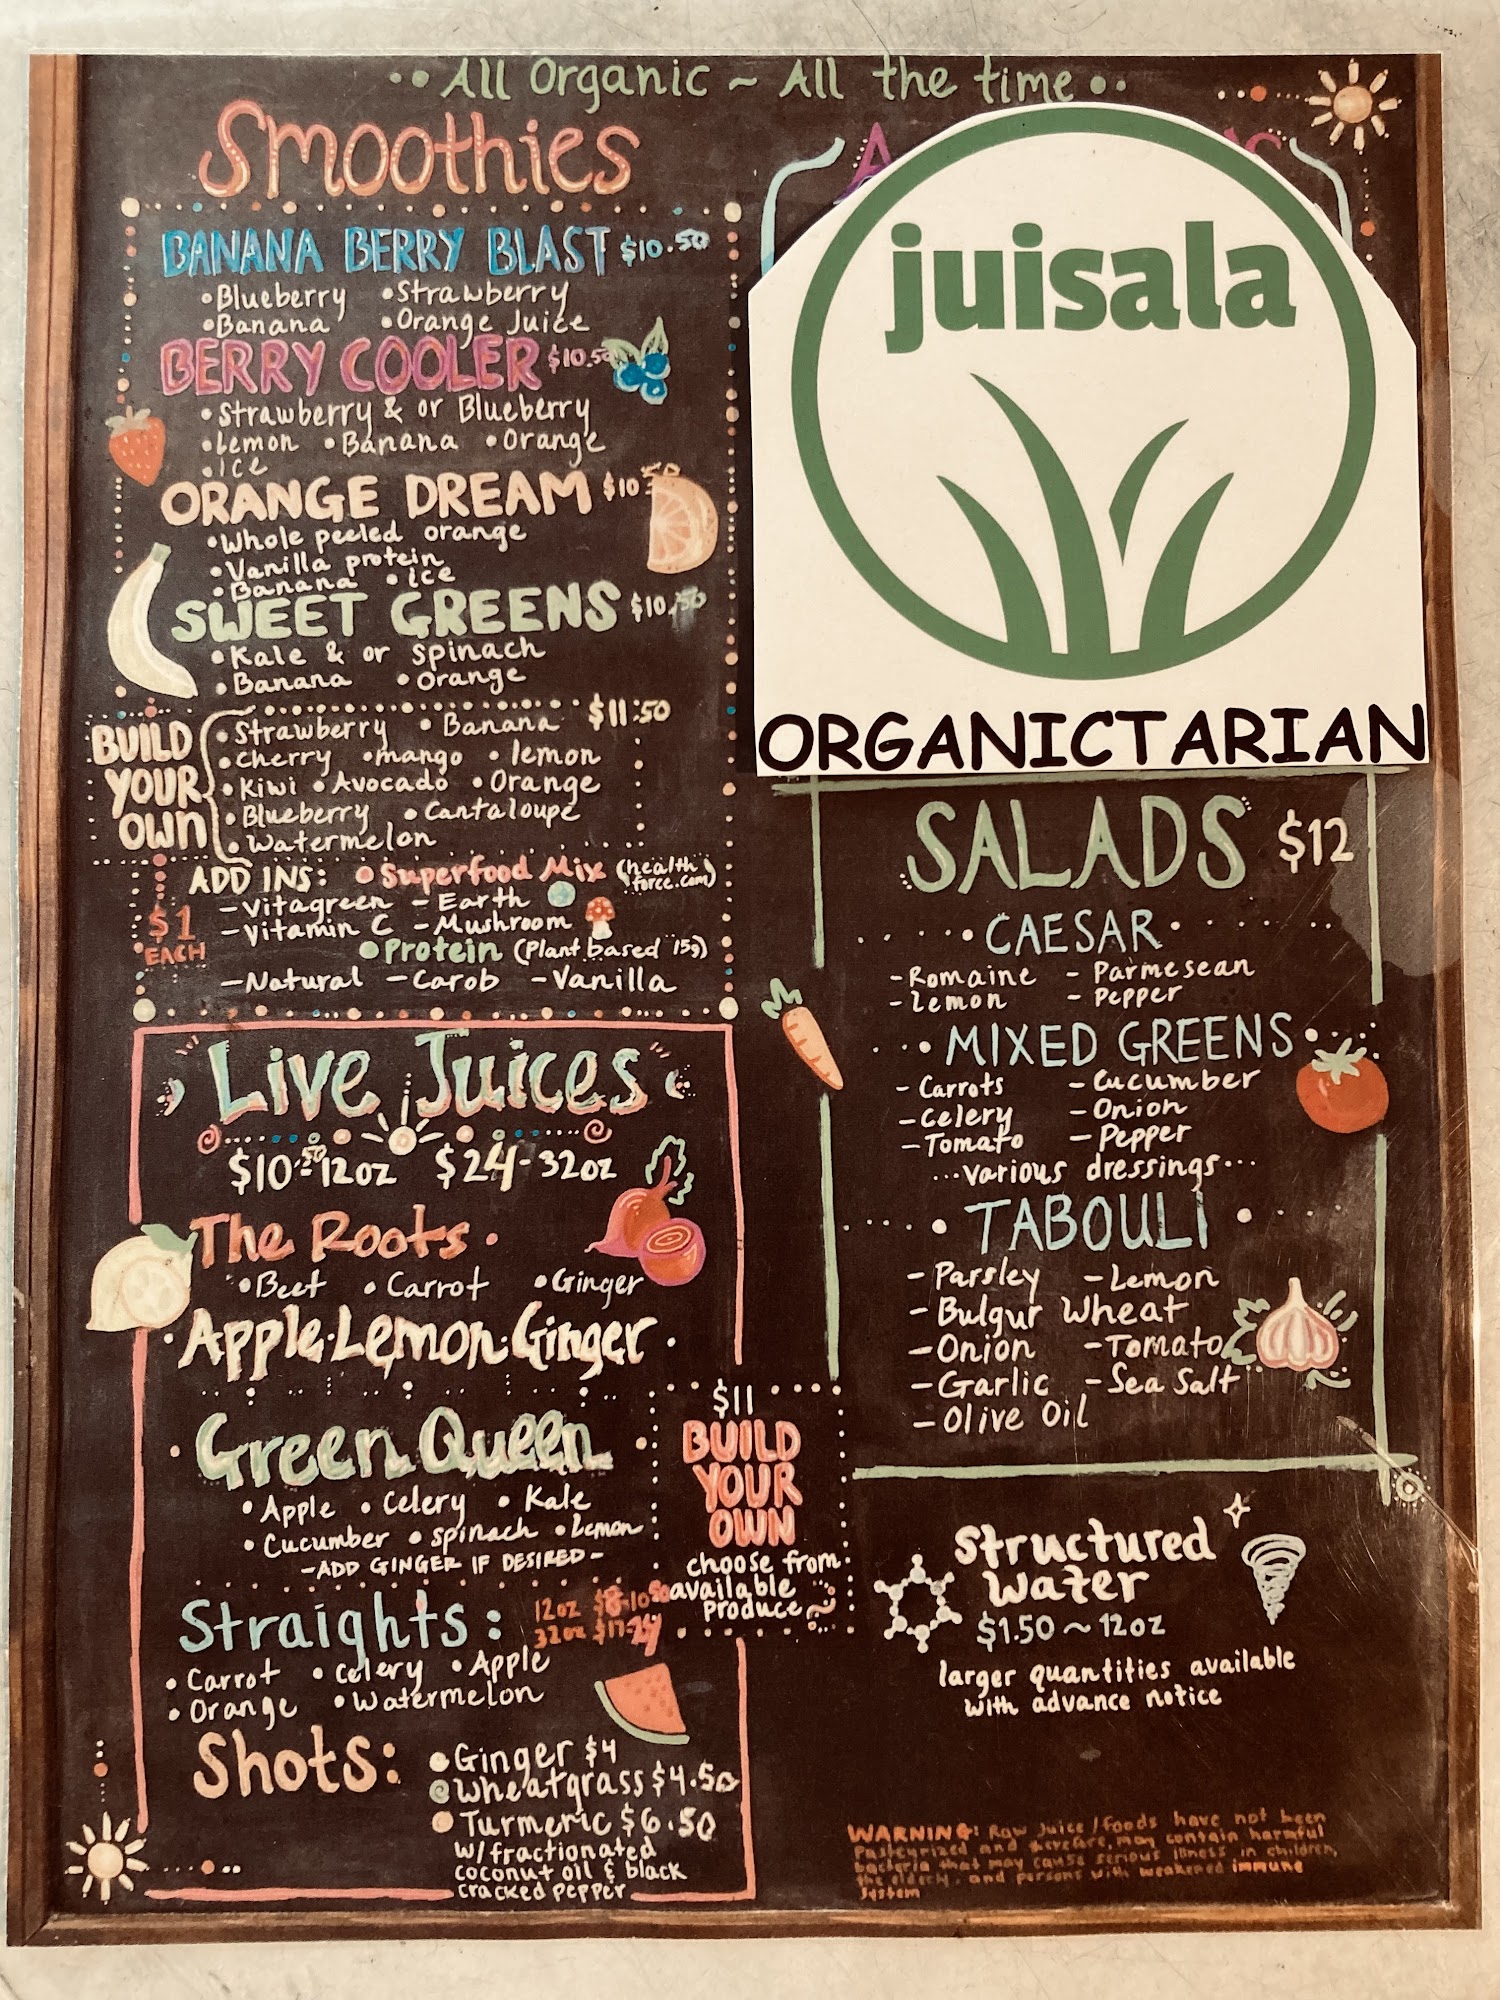 •• All Organic ~ All the time ••
Smoothies
BANANA BERRY BLAST $10.50
•Blueberry •Strawberry
•Banana •Orange Juice
BERRY COOLER $10.50
•Strawberry & or Blueberry
•Lemon •Banana •Orange
•Ice
ORANGE DREAM $10.50
•Whole peeled orange
•Vanilla protein
•Banana •Ice
SWEET GREENS $10.50
•Kale & or spinach
•Banana •Orange
BUILD YOUR OWN
$11.50
•Strawberry •Banana
•Cherry •mango •lemon
•Kiwi •Avocado •Orange
•Blueberry •Cantaloupe
•Watermelon
ADD INS: •Superfood Mix (health force.com)
$1 EACH
-Vitagreen -Earth
-Vitamin C -Mushroom
•Protein (Plant based 15g)
-Natural -Carob -Vanilla
Live Juices
$10.50 12oz $24-32oz
The Roots
•Beet •Carrot •Ginger
•Apple•Lemon•Ginger•
•Green Queen•
•Apple •Celery •Kale
•Cucumber •spinach •lemon
-ADD GINGER IF DESIRED-
$11
BUILD
YOUR
OWN
choose from
available
produce
Straights:
12oz $8-10.50
32oz $17-24
•Carrot •Celery •Apple
•Orange •Watermelon
Shots:
•Ginger $4
•Wheatgrass $4.50
•Turmeric $6.50
w/fractionated
coconut oil & black
cracked pepper
juisala
ORGANICTARIAN
SALADS $12
CAESAR
-Romaine -Parmesean
-Lemon -Pepper
MIXED GREENS
-Carrots -Cucumber
-Celery -Onion
-Tomato -Pepper
...various dressings...
TABOULI
-Parsley -Lemon
-Bulgur Wheat
-Onion -Tomato
-Garlic -Sea Salt
-Olive Oil
Structured
Water
$1.50 ~ 12oz
larger quantities available
with advance notice
WARNING: Raw Juice/foods have not been
Pasteurized and therefore, may contain harmful
bacteria that may cause serious illness in children,
the elderly, and persons with weakened immune
System